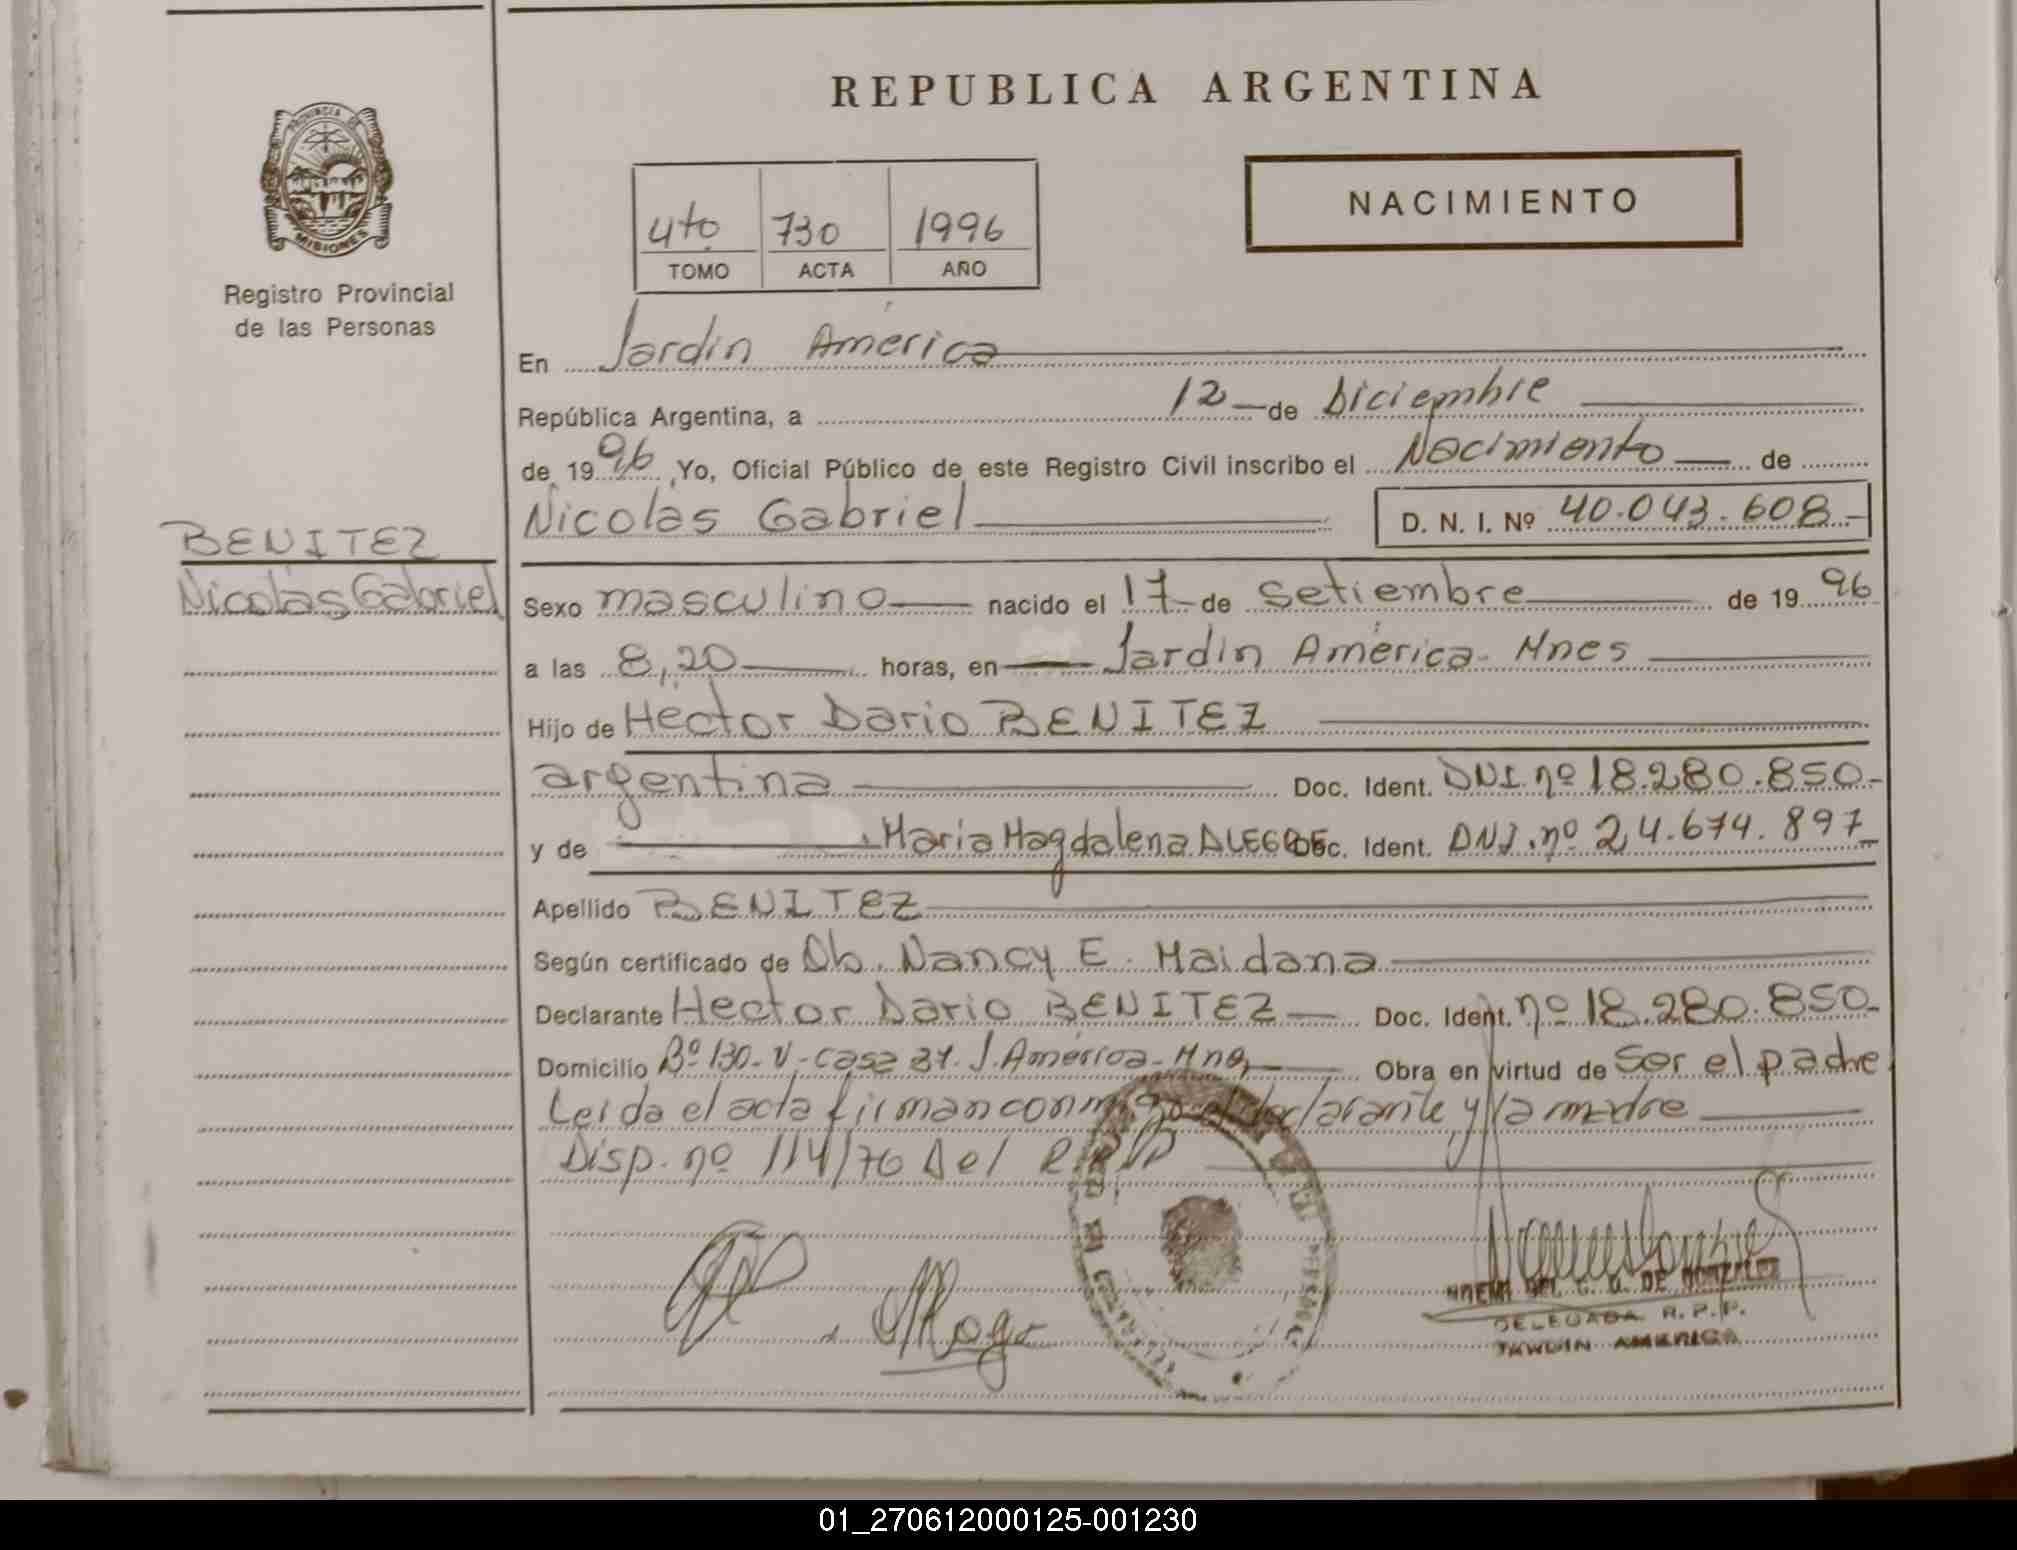 REPUBLICA ARGENTINA
PROVINCIA DE
MISIONES
Registro Provincial
de las Personas
4to 730 1996
TOMO ACTA AÑO
NACIMIENTO
En Jardín América
República Argentina, a 12 de Diciembre
de 1996 ,Yo, Oficial Público de este Registro Civil inscribo el Nacimiento de
Nicolás Gabriel D. N. I. Nº 40.043.608.-
BENITEZ
Nicolás Gabriel
Sexo masculino nacido el 17 de setiembre de 1996
a las 8,20 horas, en Jardín América- Mnes
Hijo de Hector Dario BENITEZ
argentina Doc. Ident. DNI. nº 18.280.850.-
y de Maria Magdalena ALEGRE Doc. Ident. DNI. nº 24.674.897
Apellido BENITEZ
Según certificado de Ob. Nancy E. Maidana
Declarante Hector Dario BENITEZ Doc. Ident. nº 18.280.850.-
Domicilio Bº 130-V-Casa J. América- Obra en virtud de Ser el padre
Leída el acta firman conmigo el declarante y la madre
Disp. nº 114/76 Del
DE GONZALEZ
DELEGADA R.P.P.
JARDIN AMERICA
01_270612000125-001230